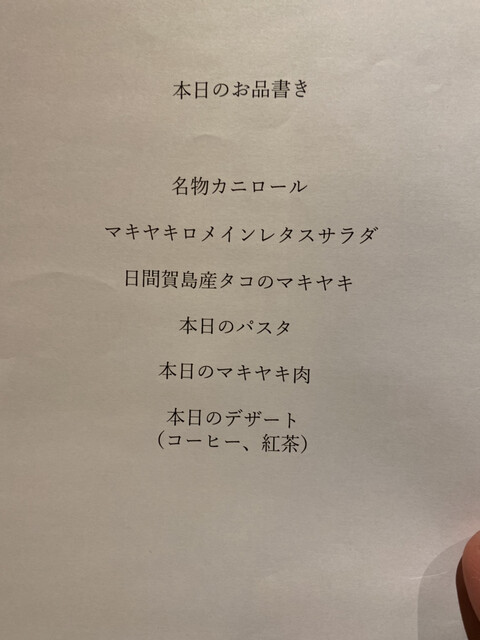 本日のお品書き
名物カニロール
マキヤキロメインレタスサラダ
日間賀島産タコのマキヤキ
本日のパスタ
本日のマキヤキ肉
本日のデザート
（コーヒー、紅茶）